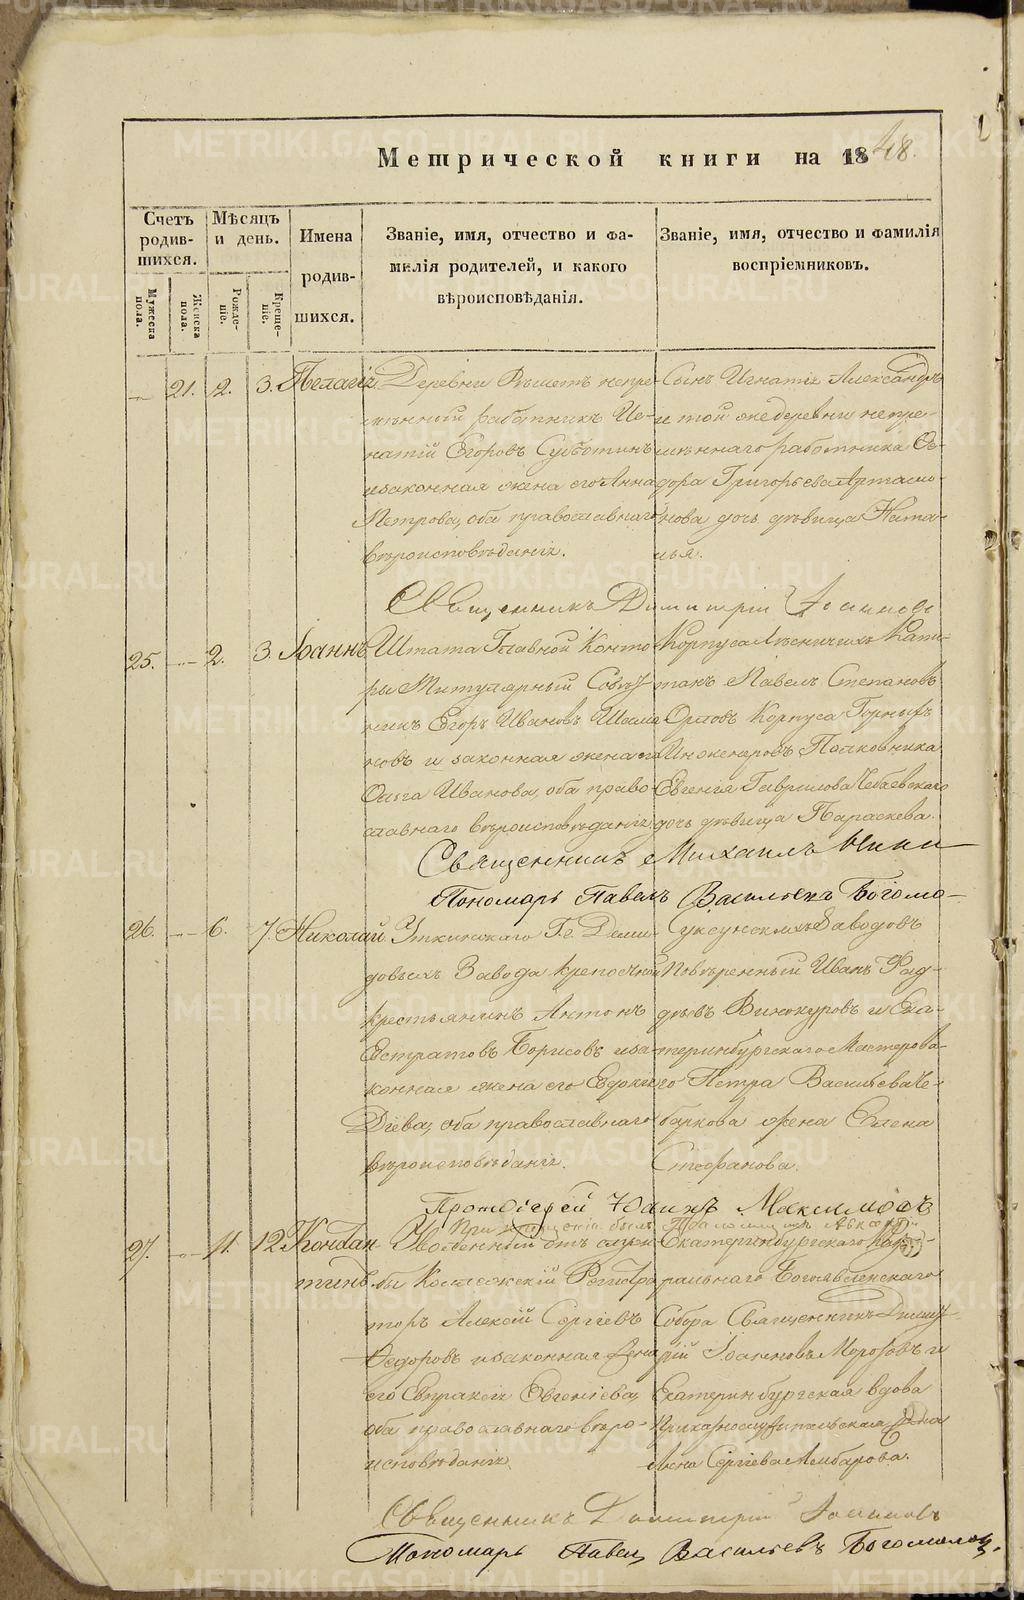 Метрической книги на 1848.
Счетъ родив-шихся.
Мѣсяцъ и день.
Имена родив-шихся.
Званіе, имя, отчество и фа-
милія родителей, и какого
вѣроисповѣданія.
Званіе, имя, отчество и фамилія
воспріемниковъ.
Мужеска пола.
Женска пола.
Рожде-ніе.
Креще-ніе.
21. 2. 3. Пелагія
Деревни Рѣшетъ непре-
мѣнный работникъ Иг-
натій Егоровъ Субботинъ
и законная жена его Анна
Петрова, оба православнаго
вѣроисповѣданія.
Сынъ Игнатія Александръ
и той же деревни непре-
мѣннаго работника Ѳе-
дора Григорьева Артамо-
нова дочь дѣвица Ната-
лья.
Священникъ Димитрій
25. 2. 3. Іоаннъ
Штата Главной Конто-
ры Титулярный Совѣт-
никъ Егоръ Ивановъ
новъ и законная жена его
Ольга Иванова, оба право-
славнаго вѣроисповѣданія.
Корпуса Лѣсничихъ Капи-
танъ Павелъ Степановъ
Орловъ Корпуса Горныхъ
Инженеровъ Полковника
Евгенія Гаврилова Чебаевскаго
дочь дѣвица Параскева.
Священникъ Михаилъ
Пономарь Павелъ Васильевъ Богомо-
26. 6. 7. Николай
Уткинскаго Гг. Деми-
довыхъ Завода крепостной
крестьянинъ Антонъ
Евстратовъ Борисовъ и за-
конная жена его Евдокія
оба православнаго
вѣроисповѣданія.
Суксунскихъ Заводовъ
Повѣренный Иванъ Фад-
дѣевъ Винокуровъ и Ека-
теринбургскаго Мастерова-
го Петра Васильева Че-
баркова жена Елена
Стефанова.
Протоіерей Іоаннъ Максимовъ
При крещеніи былъ
27. 11. 12. Констан
тинъ
Уволенный отъ служ-
бы Коллежскій Регистра
торъ Алексій Сергіевъ
Федоровъ и законная жена
его Евпраксія Евгеніева,
оба православнаго вѣро-
исповѣданія.
Екатеринбургскаго
ральнаго Богоявленскаго
Собора Священникъ Димит-
рій Іоанновъ Морозовъ и
Екатеринбургская вдова
Анна Сергіева Амбарова.
Священникъ Димитрій
Пономарь Павелъ Васильевъ Богомоловъ.
METRIKI.GASO-URAL.RU